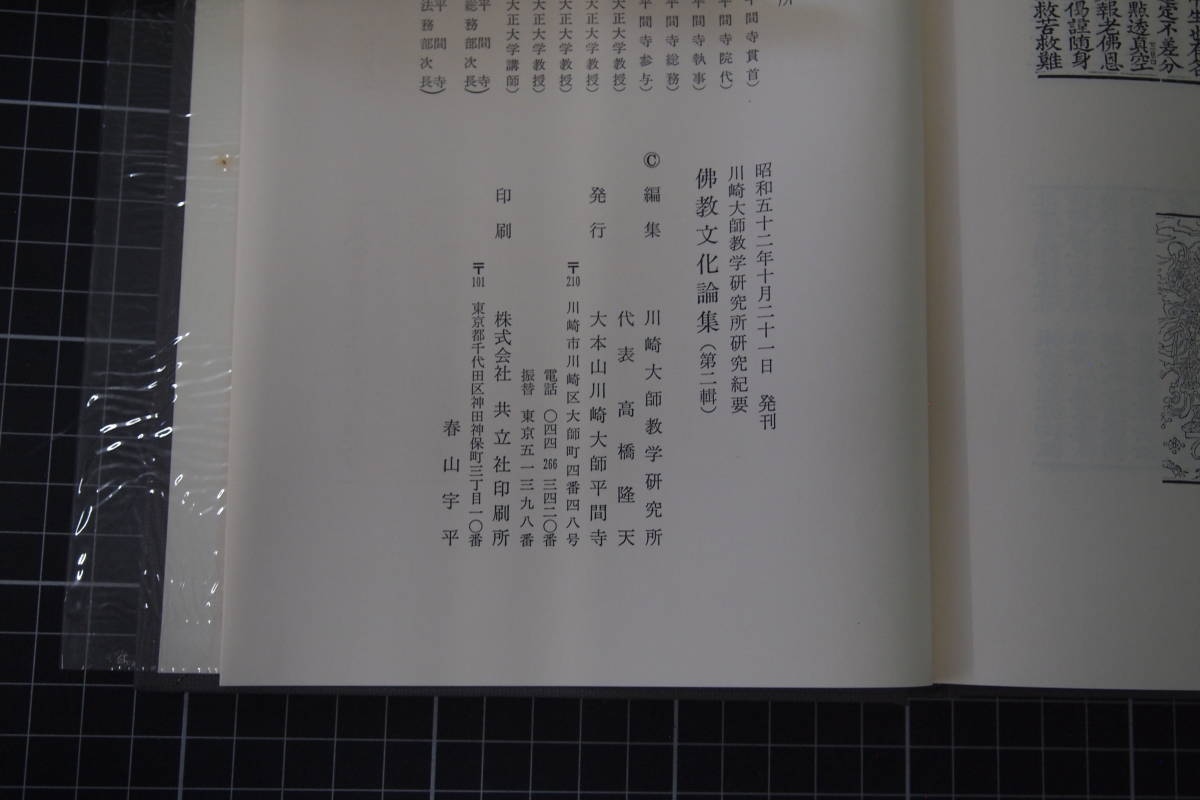 救苦救難
偈證随身
報老佛恩
點透真空
走不差分
平間寺貫首)
平間寺院代)
平間寺執事)
平間寺総務)
平間寺参与)
大正大学教授)
大正大学教授)
大正大学教授)
大正大学教授)
大正大学講師)
平間寺
総務部次長)
平間寺
法務部次長)
昭和五十二年十月二十一日 発刊
川崎大師教学研究所研究紀要
佛教文化論集(第二輯)
© 編集 川崎大師教学研究所
代表 高橋隆天
発行 大本山川崎大師平間寺
〒210 川崎市川崎区大師町四番四八号
電話 〇四四 266 三四二〇番
振替 東京五一三九八番
印刷 株式会社 共立社印刷所
〒101 東京都千代田区神田神保町三丁目一〇番
春山宇平